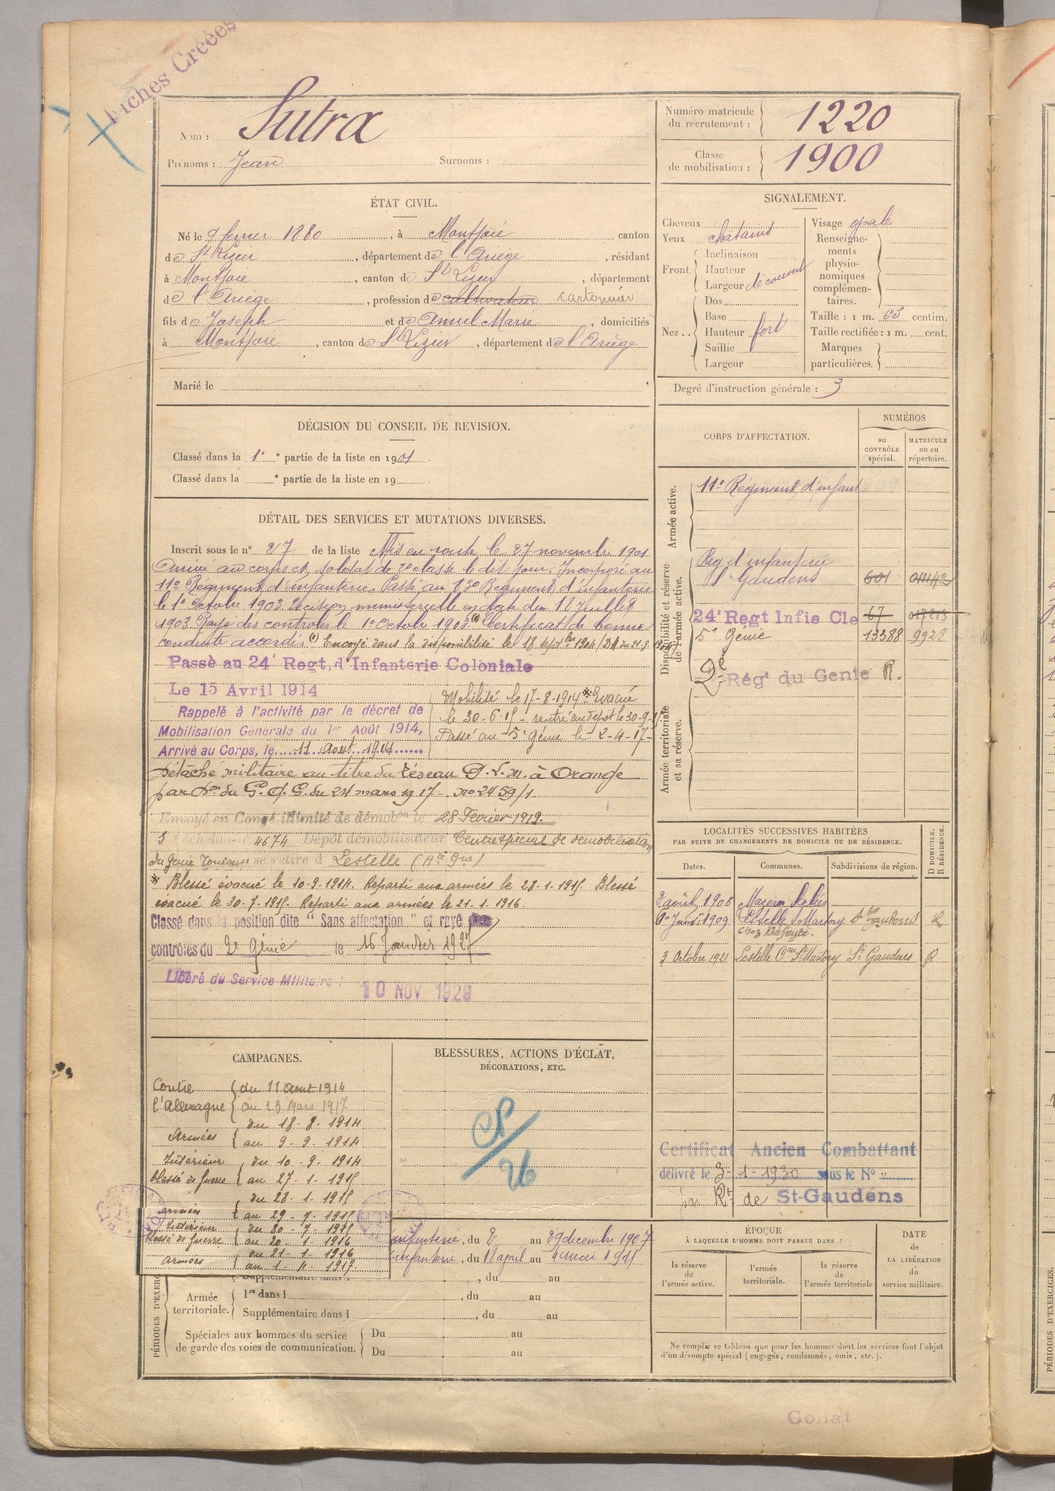 Fiches Créées
Nom : Sutra
Prénoms : Jean Surnoms :
Numéro matricule du recrutement : 1220
Classe de mobilisation : 1900
ÉTAT CIVIL.
Né le 9 fevrier 1880, à Montjoie canton
de St Lizier, département de l'Ariège, résidant
à Montjoie, canton de St Lizier, département
de l'Ariège, profession de cultivateur cartonnier
fils de Joseph et de Anne Marie, domiciliés
à Montjoie, canton de St Lizier, département de l'Ariège
Marié le
SIGNALEMENT.
Cheveux
Yeux châtains
Front. Inclinaison
Hauteur
Largeur découvert
Nez. Dos
Base
Hauteur fort
Saillie
Largeur
Visage ovale
Renseignements physionomiques complémentaires.
Taille : 1 m. 65 centim.
Taille rectifiée : 1 m. cent.
Marques particulières.
Degré d'instruction générale : 3
DÉCISION DU CONSEIL DE REVISION.
Classé dans la 1e partie de la liste en 1901.
Classé dans la e partie de la liste en 19
DÉTAIL DES SERVICES ET MUTATIONS DIVERSES.
Inscrit sous le n° 27 de la liste Mis en route le 27 novembre 1901
Arrivé au corps et soldat de 2e classe le dit jour. Incorporé au
11e Régiment d'infanterie. Passé au 83e Régiment d'infanterie
le 1er Octobre 1903. Décision ministérielle en date du 11 juillet
1903. Rayé des controles le 1er Octobre 1903 (1) Certificat de bonne
conduite accordé. (1) Envoyé dans la disponibilité le 18 septbre 1904
Passé au 24e Regt. d'Infanterie Coloniale
Le 15 Avril 1914
Rappelé à l'activité par le décret de
Mobilisation Générale du 1er Août 1914,
Arrivé au Corps, le 11 Août 1914
Mobilisé le 17-8-1914 * Evacué
le 30-6-15 - rentré au dépot le 30-9-15
Passé au 5e génie le 2-4-17-
Détaché militaire au titre du réseau P.L.M. à Orange
par Don du G.Q.G. du 24 mars 1917. No 2459/1
Envoyé en Congé illimité de démobon le 28 Fevrier 1919.
5 échelon 4674 Dépot démobilisateur Centre spécial de démobilisation
du Génie Toulouse se retire à Lestelle (Hte Gne)
* Blessé évacué le 10-9-1914. Reparti aux armées le 28-1-1915. Blessé
évacué le 30-7-1915. Reparti aux armées le 21-1-1916.
Classé dans la position dite "Sans affectation" et rayé des
contrôles du 2e Génie le 16 Janvier 1927
Libéré du Service Militaire : 10 NOV 1929
CORPS D'AFFECTATION.
NUMÉROS
au CONTRÔLE spécial.
MATRICULE ou au répertoire.
Armée active.
11e Régiment d'infant
Disponibilité et réserve de l'armée active.
Reg d'infanterie
St Gaudens 601
24e Regt Infie Cle 67
5e génie 13388 9928
2e Rég' du Génie R.
Armée territoriale et sa réserve.
LOCALITÉS SUCCESSIVES HABITÉES
PAR SUITE DE CHANGEMENTS DE DOMICILE OU DE RÉSIDENCE.
Dates. Communes. Subdivisions de région.
D DOMICILE. R RÉSIDENCE.
août 1906 Mazères
Janv. 1909 Lestelle St Martory St Gaudens R
chez
3 Octobre 1921 Lestelle Cne St Martory St Gaudens R
CAMPAGNES.
Contre l'Allemagne du 11 Août 1914
au 23 Mars 1917
Armées du 18-8-1914
au 9-9-1914
Intérieur Blessé de Guerre du 10-9-1914
au 27-1-1915
armées du 28-1-1915
au 29-7-1915
Intérieur Blessé de Guerre du 30-7-1915
au 20-1-1916
Armées du 21-1-1916
au 1-4-1917
BLESSURES, ACTIONS D'ÉCLAT,
DÉCORATIONS, ETC.
Certificat Ancien Combattant
délivré le 3-1-1930 sous le N°
par Rt de St-Gaudens
infanterie, du 2 au 29 décembre 1907
infanterie, du 18 avril au 4 mai 1911
Supplémentaire dans l , du au
PÉRIODES D'EXERC
Armée territoriale. 1re dans l , du au
Supplémentaire dans l , du au
Spéciales aux hommes du service de garde des voies de communication. Du au
Du au
ÉPOQUE
À LAQUELLE L'HOMME DOIT PASSER DANS :
la réserve de l'armée active.
l'armée territoriale.
la réserve de l'armée territoriale
DATE de LA LIBÉRATION du service militaire.
Ne remplir ce tableau que pour les hommes dont les services font l'objet
d'un décompte spécial (engagés, condamnés, omis, etc.).
PÉRIODES D'EXERCICES.